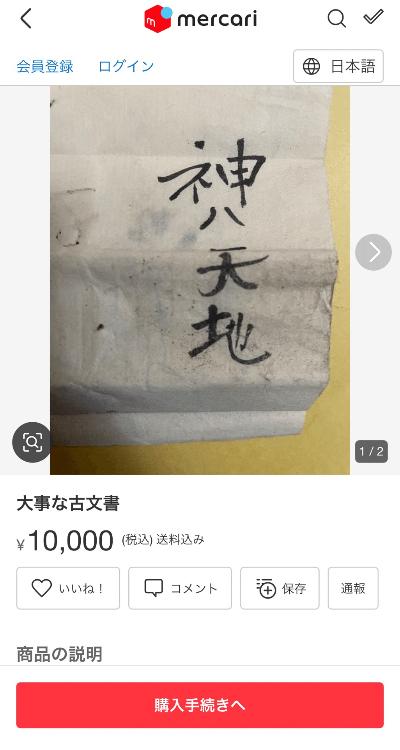 mercari
会員登録 ログイン 日本語
神ハ天地
1 / 2
大事な古文書
¥10,000 (税込) 送料込み
いいね! コメント 保存 通報
商品の説明
購入手続きへ